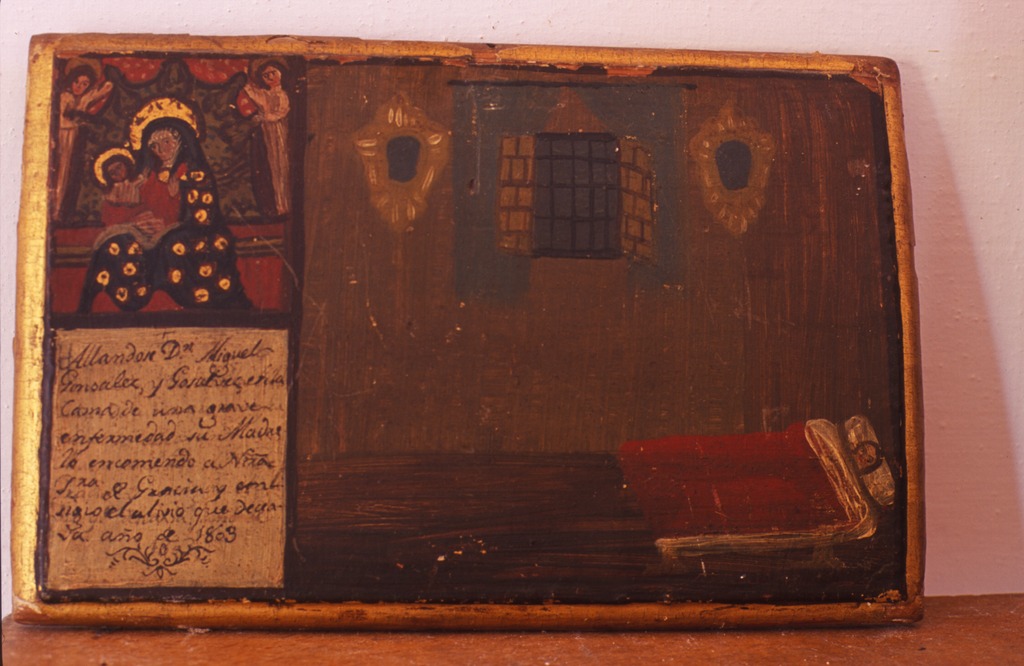 Allandose Dn Miguel
Gonsalez, y en la
Cama de una grave
enfermedad su Madre
lo encomendo a Ntra
Sra de Gracia y consi
guio el alivio que decea
va año de 1803